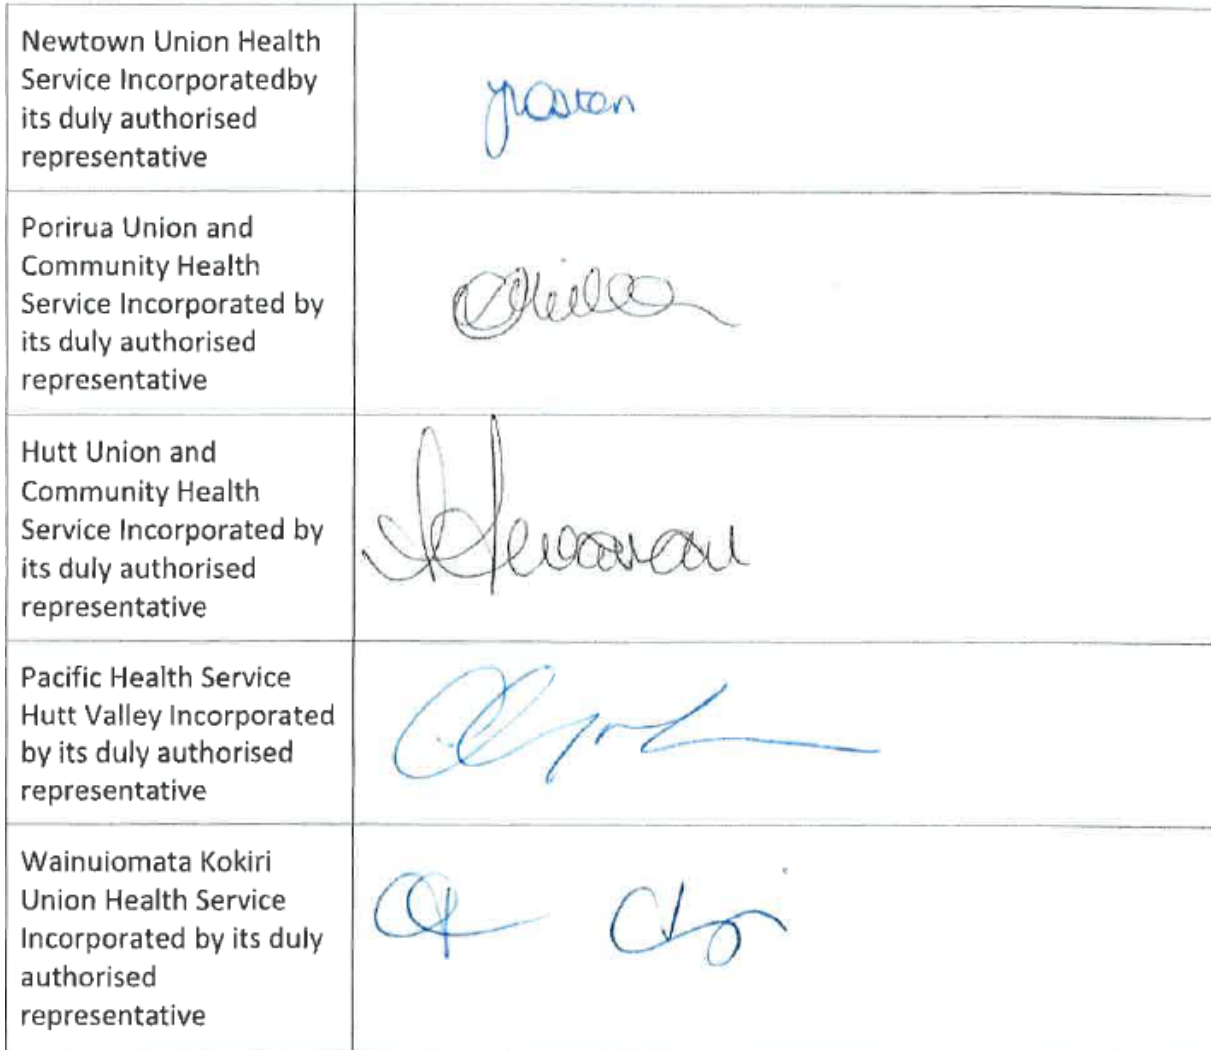 Newtown Union Health
Service Incorporatedby
its duly authorised
representative
Porirua Union and
Community Health
Service Incorporated by
its duly authorised
representative
Hutt Union and
Community Health
Service Incorporated by
its duly authorised
representative
Pacific Health Service
Hutt Valley Incorporated
by its duly authorised
representative
Wainuiomata Kokiri
Union Health Service
Incorporated by its duly
authorised
representative